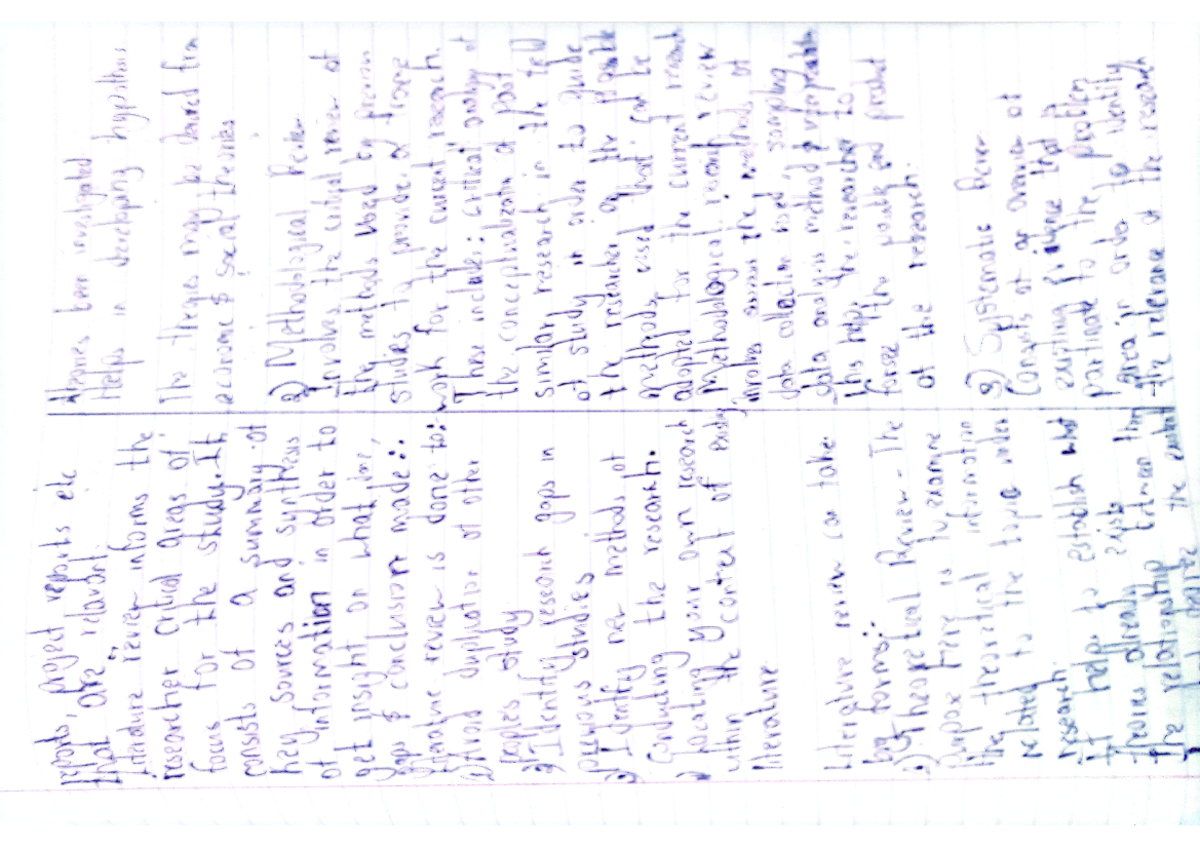 reports, project reports etc
that are relavant.
literature review informs the
researcher critical areas of
focus for the study. It
consists of a summary of
key sources and synthesis
of information in order to
get insight on what done,
gaps & conclusion made:
literature review is done to:
Avoid duplication of other
peoples study
2) Identify research gaps in
previous studies
3) Identify new methods of
Conducting the research.
Locating your own research
within the context of
literature
Literature review can take
forms:-
Theoretical Review - The
purpose here is to examine
the theoretical information
related to the topic under
research.
It help to establish what
theories already exists the
the relationship between
theories been investigated
Helps in developing hypothesis
The theories may be derived from
economic & social theories
2) Methodological Review
Involves the critical review of
the methods used by previous
studies to provide a frame
work for the current research.
These include: Critical analysis of
the conceptualization of past
similar research in the field
of study in order to guide
the researcher on the possible
methods used that can be
adopted for the current research
Methodological research review
involves the methods of
data collection used sampling
data analysis method &
this helps the researcher to
foresee the possible end product
of the research.
3) Systematic Review
Consists of an overview of
existing evidence that
partinate to the problem
area in order to identify
the relevance of the research